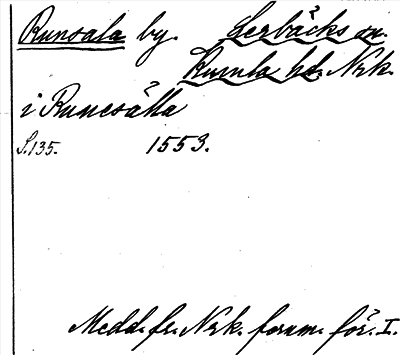 Runsala by. Lerbäcks sn.
Kumla hd. Nrk.
i Runesätta
S.135. 1553.
Medd. fr. Nrk. fornm. för. I.